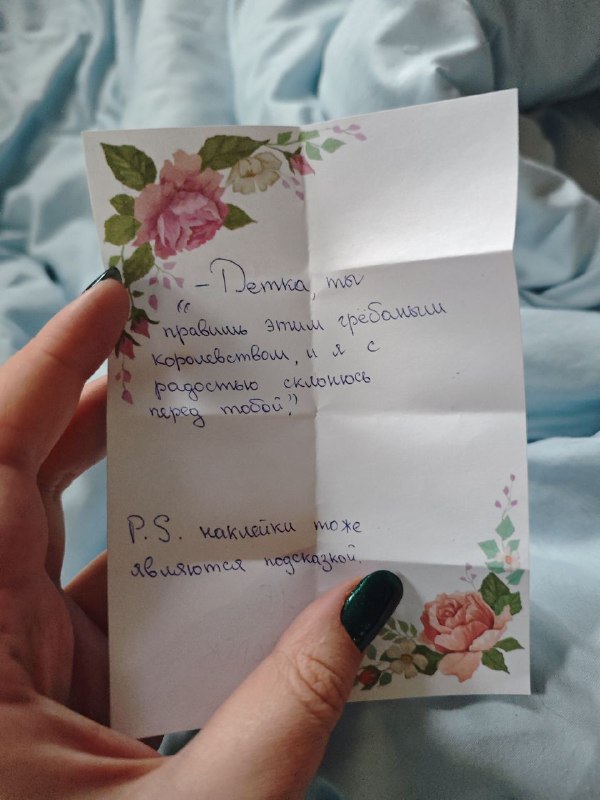 “ – Детка, ты
правишь этим грёбаным
королевством, и я с
радостью склонюсь
перед тобой.”
P.S. наклейки тоже
являются подсказкой.